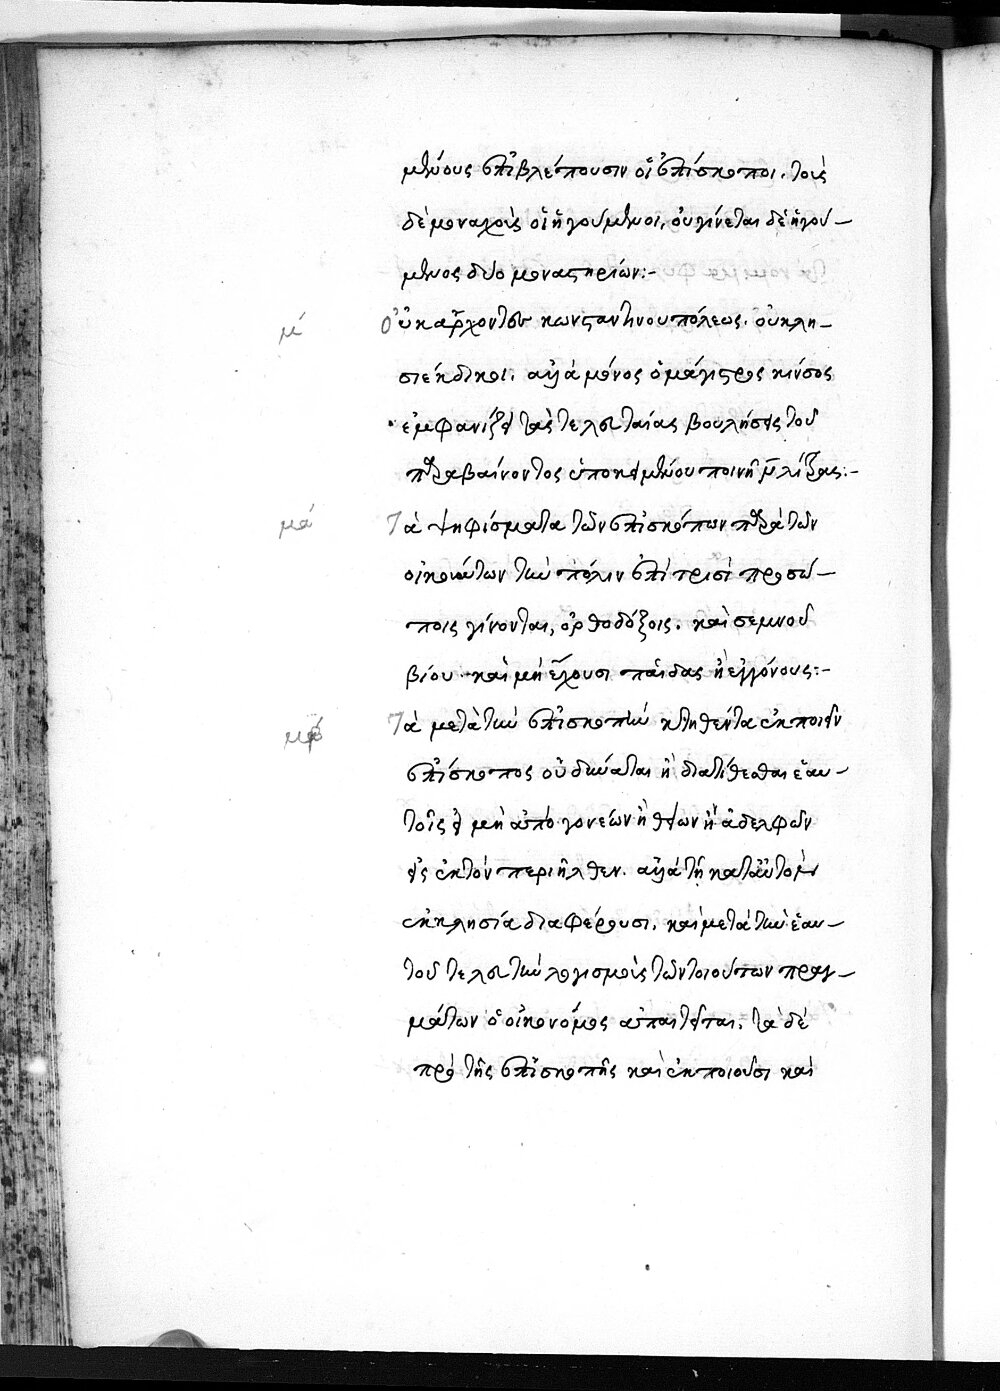 μένους ἐπιβλέπουσιν οἱ ἐπίσκοποι. τοὺς
δὲ μοναχοὺς οἱ ἡγούμενοι, οὐ γίνεται δὲ ἡγού-
μενος δύο μοναστηρίων:-
μ´ Οὐκ ἄρχοντες κωνσταντινουπόλεως. οὐκ κλη-
σιέκδικοι. ἀλλὰ μόνος ὁ μάγιστρος κίνσος
ἐμφανίζει τὰς τελευταίας βουλήσεις τοῦ
παραβαίνοντος ὑποκειμένου ποινῇ λίτρας:-
μα´ Τὰ ψηφίσματα τῶν ἐπισκόπων παρὰ τῶν
οἰκούντων τὴν πόλιν ἐπὶ τρισὶ προσώ-
ποις γίνονται, ὀρθοδόξοις. καὶ σεμνοῦ
βίου καὶ μὴ ἔχουσι παῖδας ἢ ἐγγόνους:-
μβ´ Τὰ μετὰ τὴν ἐπισκοπὴν κτηθέντα ἐκποιεῖν
ἐπίσκοπος οὐ δύναται ἢ διατίθεσθαι ἑαυ-
τοῖς εἰ μὴ ἀπὸ γονέων ἢ θείων ἢ ἀδελφῶν
εἰς αὐτὸν περιῆλθεν. ἀλλὰ τῇ κατ' αὐτὸν
ἐκκλησίᾳ διαφέρουσι. καὶ μετὰ τὴν ἑαυ-
τοῦ τελευτὴν λογισμοὺς τῶν τοιούτων πραγ-
μάτων ὁ οἰκονόμος ἀπαιτεῖται. τὰ δὲ
πρὸ τῆς ἐπισκοπῆς καὶ ἐκποιοῦσι καὶ